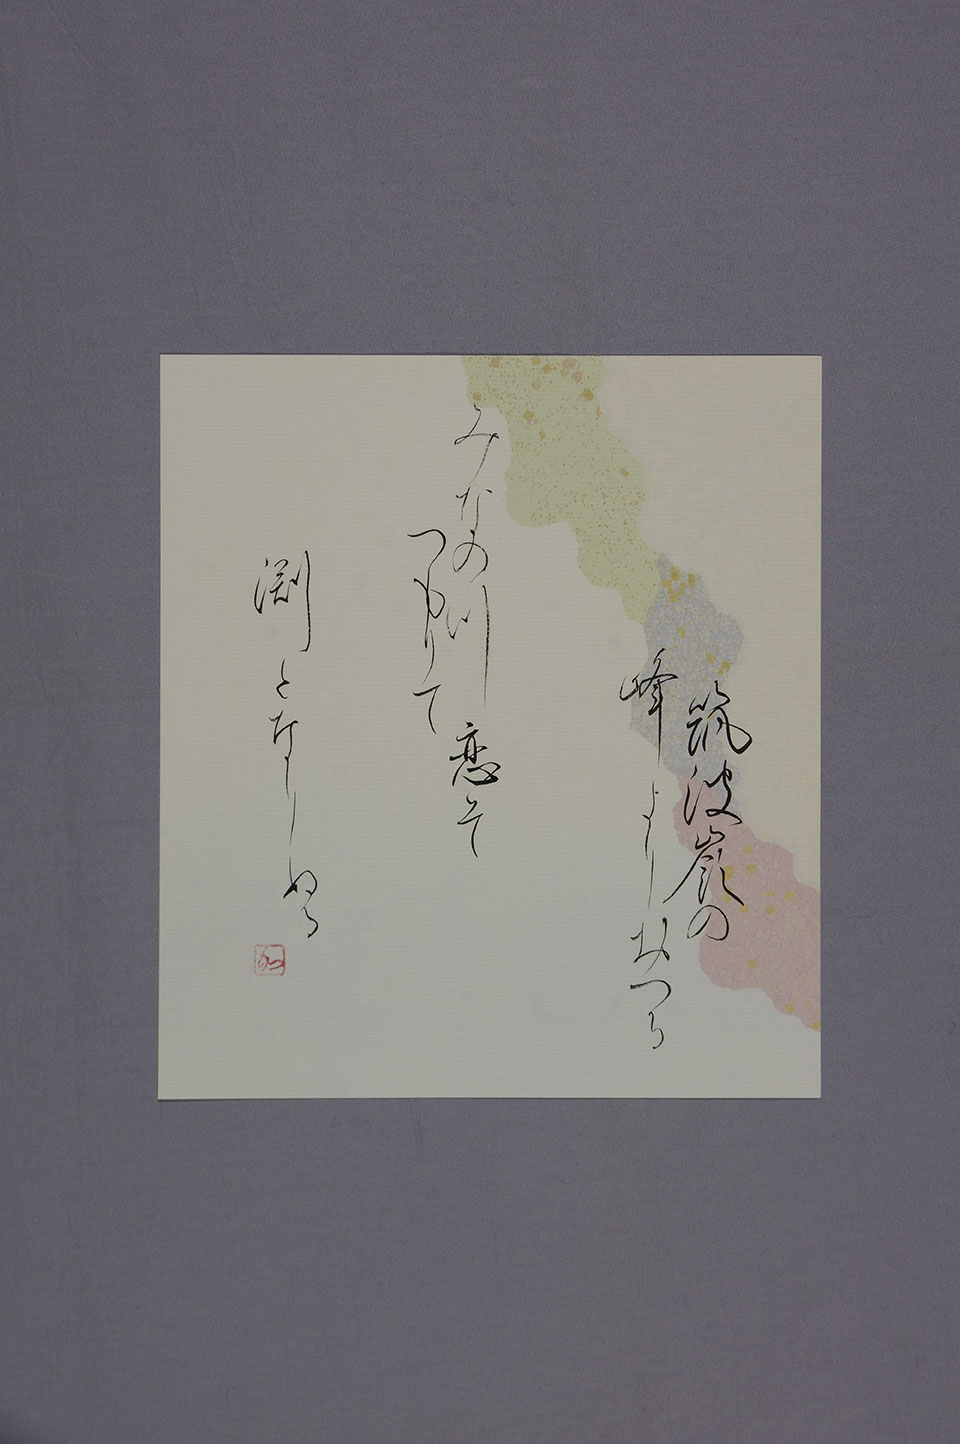 筑波嶺の
峰よりおつる
みなの川恋そ
つもりて
渕となしぬる